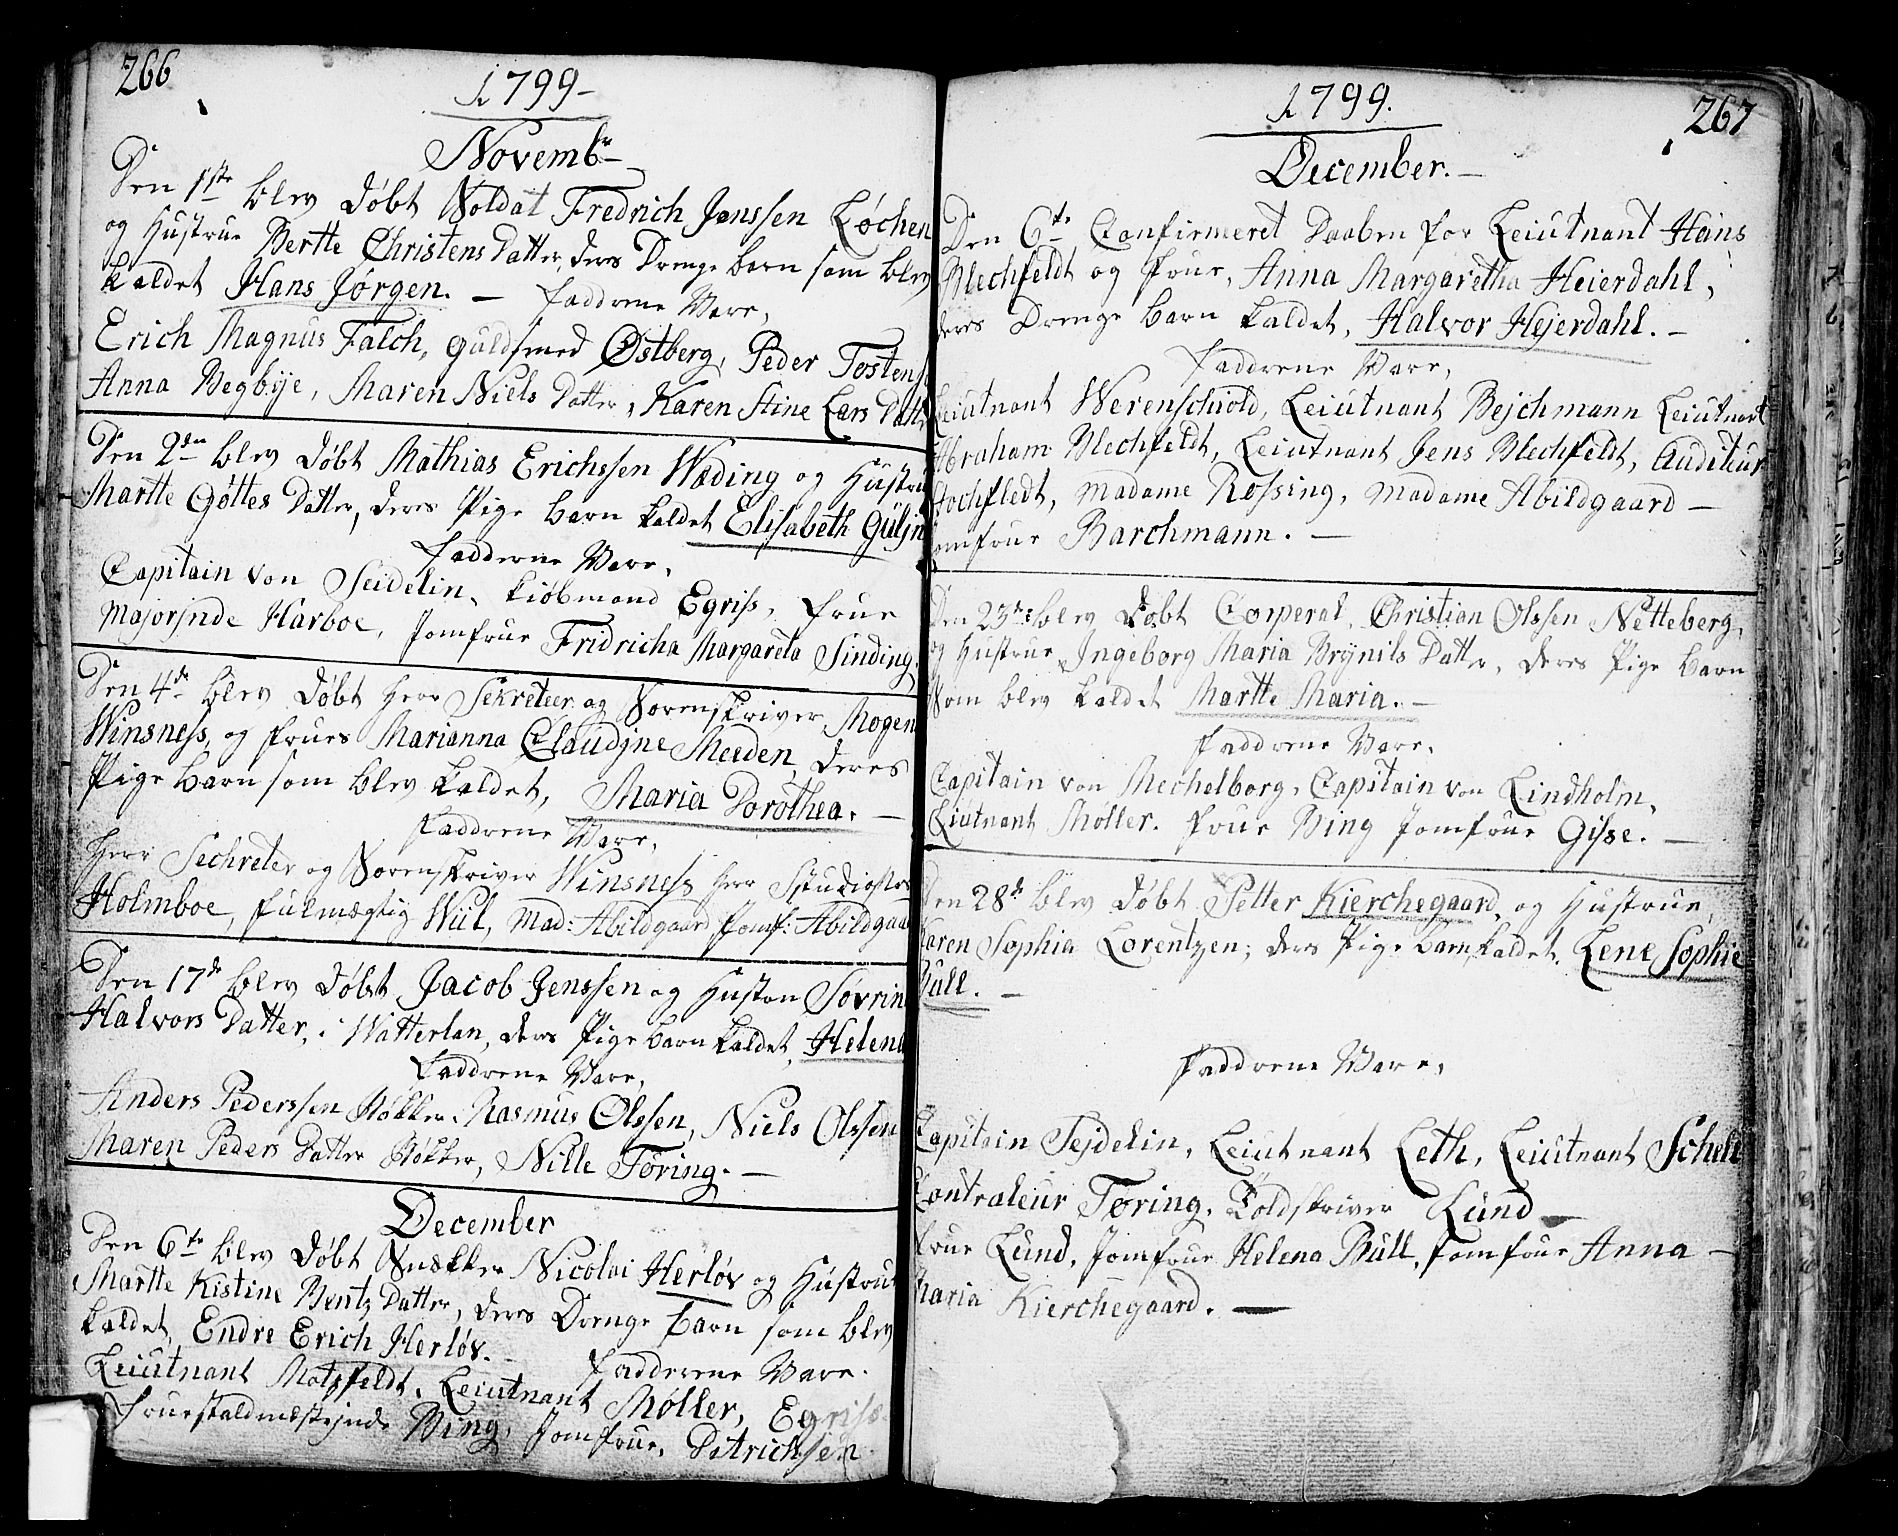 266
1799
Novembr
Den 1ste blev Døbt Soldat Fredrich Jenssen Løchen
og Hustrue Bertte Christens Datter, deres Drenge barn som blev
kaldet Hans Jørgen. — Faddrene Vare,
Erich Magnus Falch, Guldsmed Østberg, Peder Tostens
Anna Begbye, Maren Niels Datter, Karen Stine Lars Datt
Den 2den blev Døbt Mathias Erichssen Wæding og Hustru
Martte Gøttes Datter, deres Pige barn kaldet Elisabeth Güljn
Faddrene Vare,
Capitain von Seidelin, kiøbmand Egriss, Frue
Majorjnde Harboe, Jomfrue Fridricha Margareta Sinding
Den 4de blev Døbt Herr Sekreteer og Sorenskriver Mogen
Winsness, og frues Marianna Claudjne Meeden, deres
Pige barn som blev kaldet, Maria Dorothea. —
Faddrene Vare,
Herr Sechreter og Sorenskriver Winsness Herr Studiosus
Holmboe, Fulmægtig Wiil, Mad: Abildgaard Jomf: Abildgaa
Den 17de blev Døbt Jacob Jenssen og Hustru Søvrin
Halvors Datter, i Watterlan, deres Pige barn kaldet, Helena
Faddrene Vare,
Anders Pederssen Bøkker, Rasmus Olssen, Niels Olssen
Maren Peders Datter Bøkker, Nille Toring. —
December
Den 6te blev Døbt Snekker Nicolai Herløv og Hustrue
Martte Kistine Bentz Datter, deres Drenge barn som blev
kaldet, Endre Erich Herløv.
Faddrene Vare.
Leiutnant Motzfeldt, Leiutnant Møller, Egrise
Frue staldmæsterjnde Bing, Jomfrue, Ditrichsen.
267
1799.
December. —
Den 6te Confirmeret Daaben for Leiutnant Hans
Blechfeldt og Frue, Anna Margaretha Heierdahl,
deres Drenge barn kaldet, Halvor Hejerdahl. —
Faddrene Vare,
Leiutnant Werenschiold, Leiutnant Bejchmann Leiutnant
Abraham Blechfeldt, Leiutnant Jens Blechfeldt, Auditeur
Stochfledt, Madame Rossing, Madame Abildgaard —
Jomfrue Barchmann. —
Den 23de blev Døbt Corperal, Christian Olssen Netteberg,
og Hustrue Ingeborg Maria Brynils Datter, deres Pige barn
Som blev kaldet Martte Maria. —
Faddrene Vare,
Capitain von Mechelborg, Capitain von Lindholm,
Leiutnant Møller. Frue Bing Jomfrue Gisse. —
Den 28de blev Døbt Petter Kierchegaard, og Hustrue,
Karen Sophia Lorentzen; deres Pige barn kaldet, Lene Sophie
Bull. —
Faddrene Vare,
Capitain Sejdelin, Leiutnant Leth, Leiutnant Schell
Contraleur Toring, Toldskriver Lund —
Frue Lund, Jomfrue Helena Bull, Jomfrue Anna —
Maria Kierchegaard. —